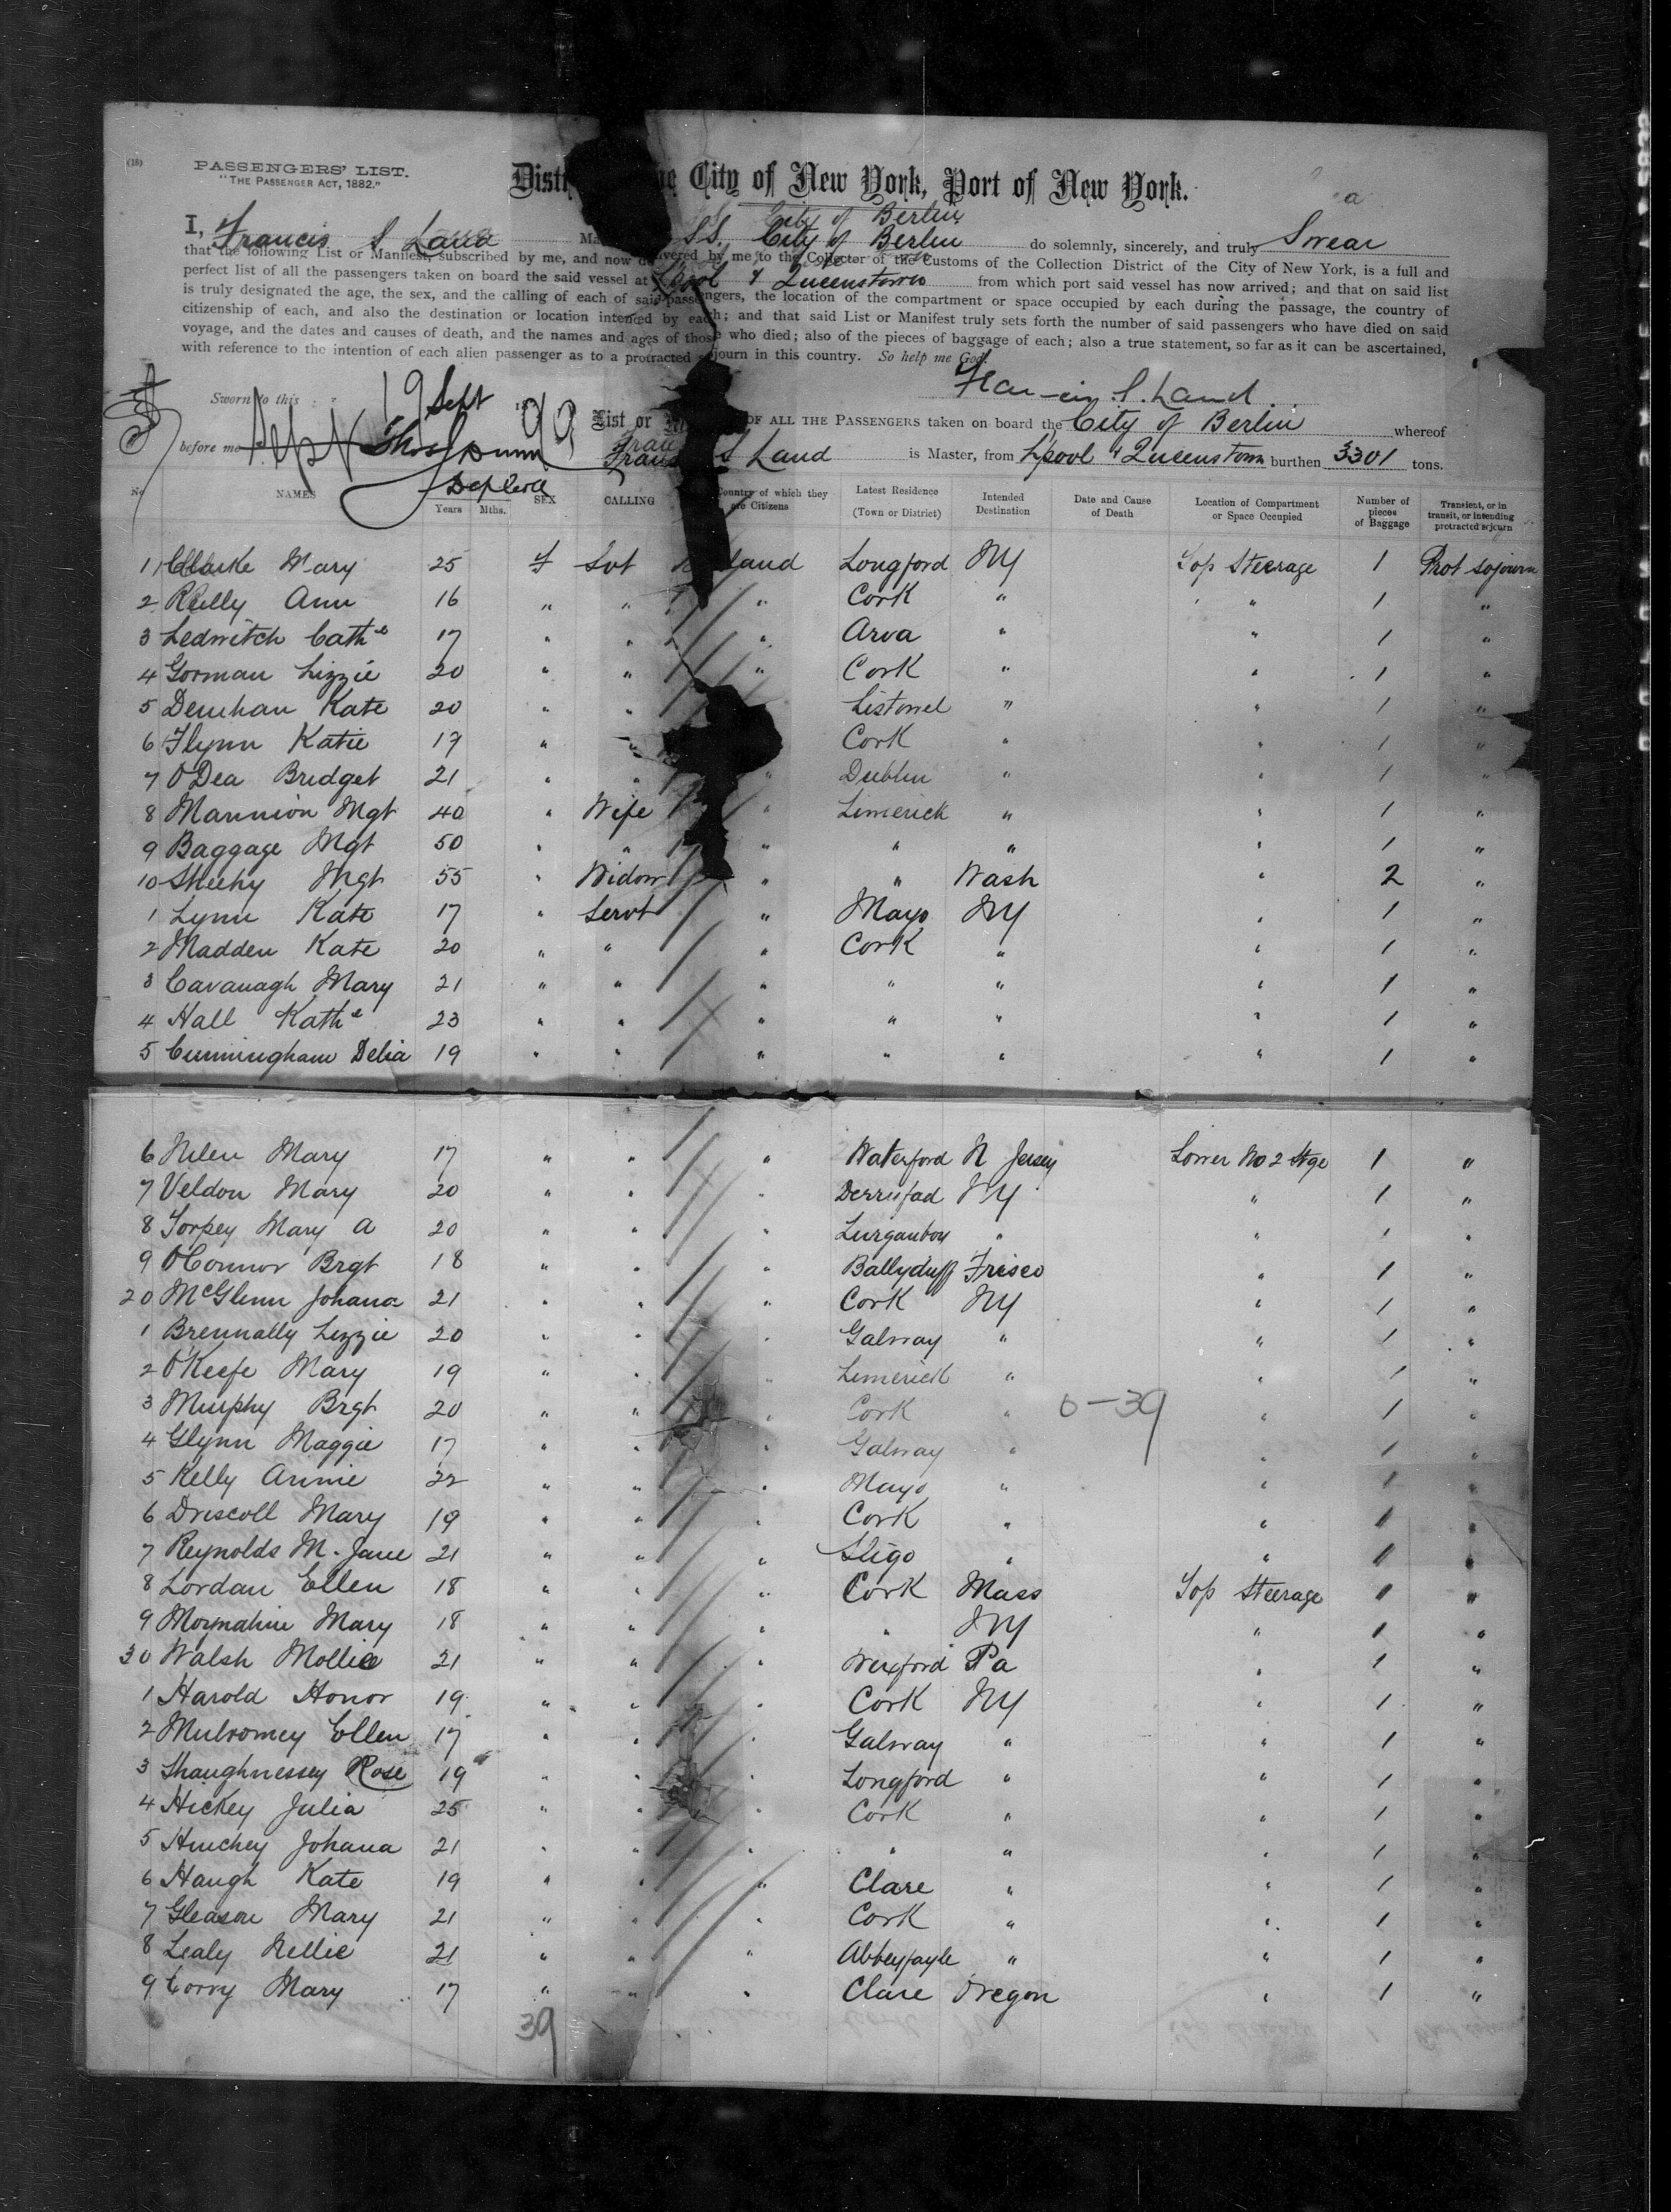 (18)
PASSENGERS' LIST.
"THE PASSENGER ACT, 1882."
City of New York, Port of New York.
City of Berlin
I, Francis S Land SS. City of Berlin do solemnly, sincerely, and truly Swear
that the following List or Manifest, subscribed by me, and now delivered by me to the Collector of the Customs of the Collection District of the City of New York, is a full and
perfect list of all the passengers taken on board the said vessel at L'pool & Queenstown from which port said vessel has now arrived; and that on said list
is truly designated the age, the sex, and the calling of each of said passengers, the location of the compartment or space occupied by each during the passage, the country of
citizenship of each, and also the destination or location intended by each; and that said List or Manifest truly sets forth the number of said passengers who have died on said
voyage, and the dates and causes of death, and the names and ages of those who died; also of the pieces of baggage of each; also a true statement, so far as it can be ascertained,
with reference to the intention of each alien passenger as to a protracted sojourn in this country. So help me God.
Francis S. Land
Sworn to this 19 Sept
List or OF ALL THE PASSENGERS taken on board the City of Berlin whereof
before me
S Land is Master, from L'pool & Queenstown burthen 3301 tons.
No NAMES Years Mths. SEX CALLING Country of which they are Citizens Latest Residence (Town or District) Intended Destination Date and Cause of Death Location of Compartment or Space Occupied Number of pieces of Baggage Transient, or in transit, or intending protracted sojourn
1 Clarke Mary 25 f Svt Longford NY Top Steerage 1 Prot sojourn
2 Reilly Ann 16 " " " Cork " " 1 "
3 Ledwitch Cathe 17 " " " Arva " " 1 "
4 Gorman Lizzie 20 " " " Cork " " 1 "
5 Denehan Kate 20 " " Listowel " " 1 "
6 Flynn Katie 19 " " Cork " " 1 "
7 O'Dea Bridget 21 " " " Dublin " " 1 "
8 Mannion Mgt 40 " Wife " Limerick " " 1 "
9 Baggage Mgt 50 " " " " " " 1 "
10 Sheehy Mgt 55 " Widow " " Wash " 2 "
1 Lynn Kate 17 " Servt " Mayo NY " 1 "
2 Madden Kate 20 " " " Cork " " 1 "
3 Cavanagh Mary 21 " " " " " " 1 "
4 Hall Kathe 23 " " " " " " 1 "
5 Cunningham Delia 19 " " " " " " 1 "
6 Nilen Mary 17 " " " Waterford N Jersey Lower No 2 Stge 1 "
7 Veldon Mary 20 " " " Derrifad NY " 1 "
8 Torpey Mary A 20 " " " Lurganboy " " 1 "
9 O'Connor Brgt 18 " " " Ballyduff Frisco " 1 "
20 McGlenn Johana 21 " " " Cork NY " 1 "
1 Brennally Lizzie 20 " " " Galway " " 1 "
2 O'Keefe Mary 19 " " " Limerick " " 1 "
3 Murphy Brgt 20 " " " Cork " 0-39 " 1 "
4 Glynn Maggie 17 " " " Galway " " 1 "
5 Kelly Annie 22 " " " Mayo " " 1 "
6 Driscoll Mary 19 " " " Cork " " 1 "
7 Reynolds M. Jane 21 " " " Sligo " " 1 "
8 Lordan Ellen 18 " " " Cork Mass Top Steerage 1 "
9 Moynahin Mary 18 " " " " NY " 1 "
30 Walsh Mollie 21 " " " Wexford Pa " 1 "
1 Harold Honor 19 " " " Cork NY " 1 "
2 Mulromey Ellen 17 " " " Galway " " 1 "
3 Shaughnessey Rose 19 " " " Longford " " 1 "
4 Hickey Julia 25 " " " Cork " " 1 "
5 Hinchey Johana 21 " " " " " " 1 "
6 Haugh Kate 19 " " " Clare " " 1 "
7 Gleason Mary 21 " " " Cork " " 1 "
8 Lealy Nellie 21 " " " Abbeyfayle " " 1 "
9 Corry Mary 17 " " " Clare Oregon " 1 "
39